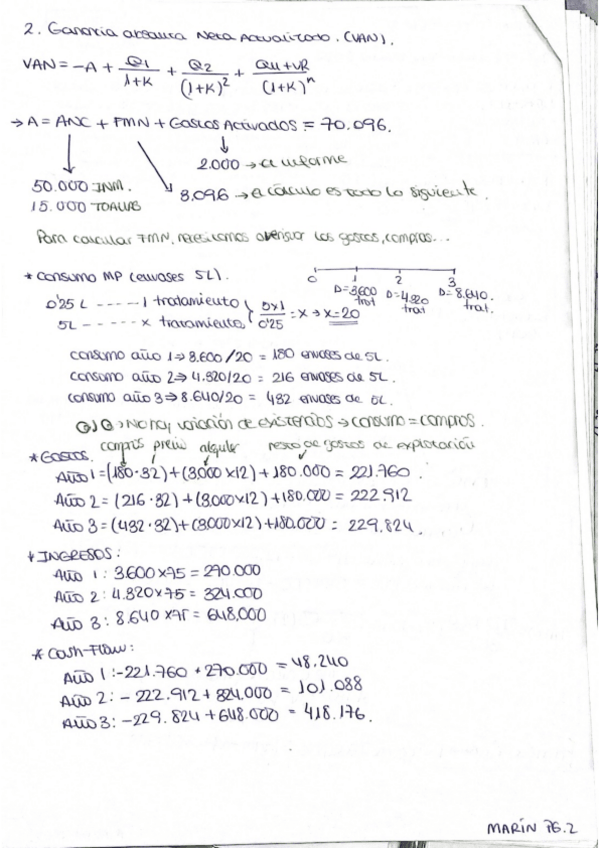 2. Ganancia absoluta Neta Actualizada. (VAN).
VAN = -A + Q1/1+K + Q2/(1+K)^2 + Q4+VR/(1+K)^n
→ A = ANC + FMN + Gastos Activados = 70.096.
2.000 → el informe
50.000 INM.
15.000 TOALLAS
8.096 → el cálculo es todo lo siguiente.
Para calcular FMN, necesitamos averiguar los gastos, compras...
* consumo MP (envases 5L).
0 1 2 3
D=3.600 trat D=4.320 trat D=8.640. trat.
0'25 L ----- 1 tratamiento
5L ----- x tratamiento
5x1/0'25 = x → x=20
consumo año 1 ⇒ 3.600/20 = 180 envases de 5L.
consumo año 2 ⇒ 4.320/20 = 216 envases de 5L.
consumo año 3 ⇒ 8.640/20 = 432 envases de 5L.
No hay variación de existencias → consumo = compras.
compras precio alquiler resto de gastos de explotación
* GASTOS.
Año 1 = (180·32)+(3.000x12)+180.000 = 221.760.
Año 2 = (216·32)+(3.000x12)+180.000 = 222.912
Año 3 = (432·32)+(3.000x12)+180.000 = 229.824.
* INGRESOS:
Año 1: 3.600x75 = 270.000
Año 2: 4.320x75 = 324.000
Año 3: 8.640x75 = 648.000
* Cash-Flow:
Año 1: -221.760 + 270.000 = 48.240
Año 2: -222.912 + 324.000 = 101.088
Año 3: -229.824 + 648.000 = 418.176.
MARÍN 76.2